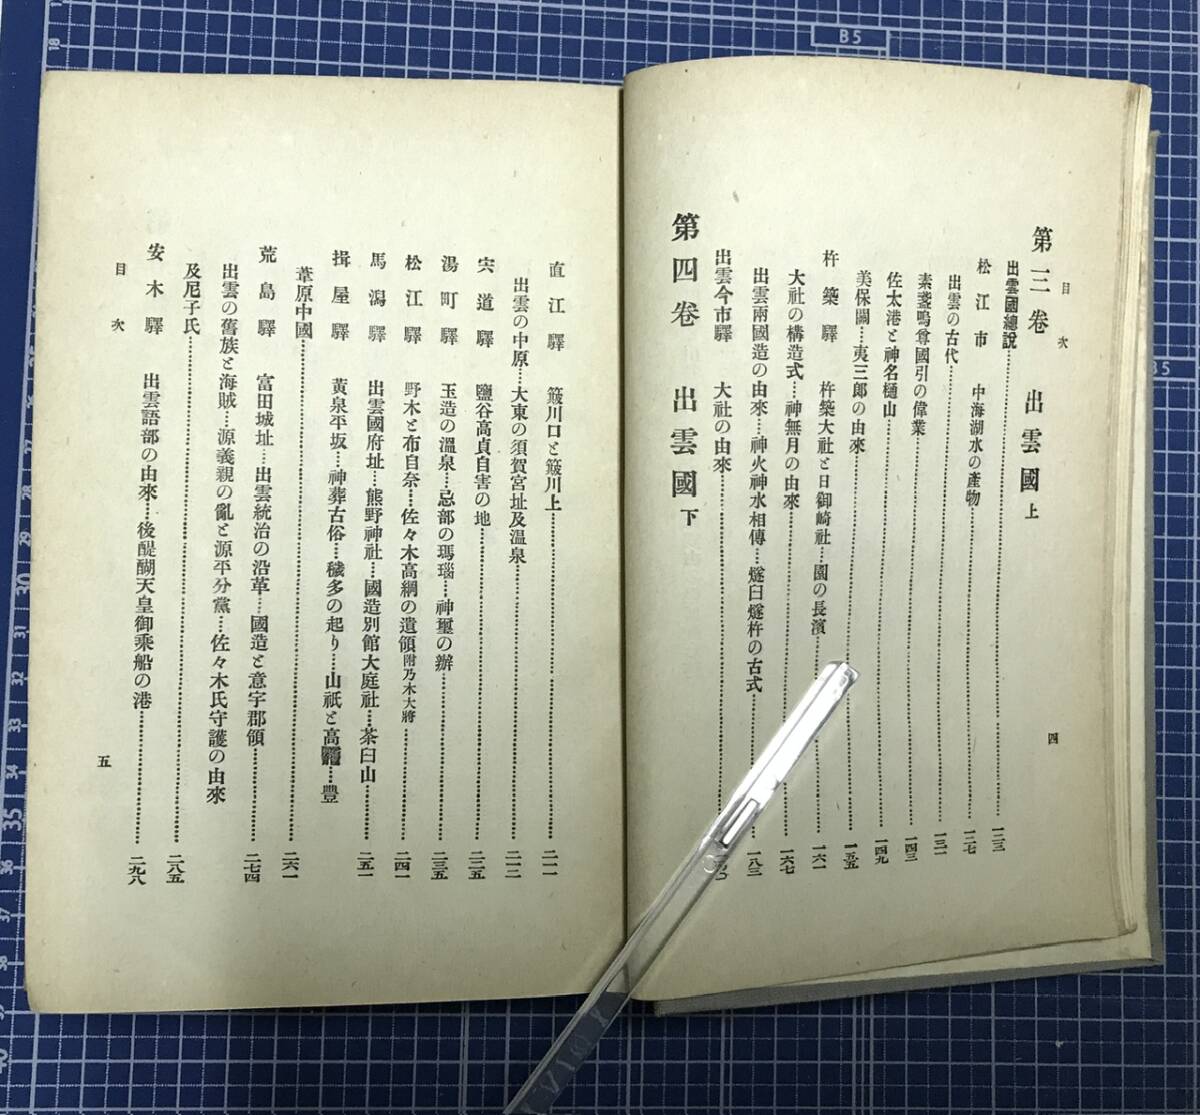 目次
第三卷　出雲國　上
出雲國總說…一二三
松江市　中海湖水の產物…一二七
出雲の古代…一三一
素盞嗚尊國引の偉業…一四三
佐太港と神名樋山…一四九
美保關…夷三郎の由來…一五五
杵築驛　杵築大社と日御崎社…園の長濱…一六一
大社の構造式…神無月の由來…一六七
出雲兩國造の由來…神火神水相傳…燧臼燧杵の古式…一八三
出雲今市驛　大社の由來
第四卷　出雲國　下
四
直江驛　簸川口と簸川上…二一一
出雲の中原…大東の須賀宮址及溫泉…二一二
宍道驛　鹽谷高貞自害の地…二二五
湯町驛　玉造の溫泉…忌部の瑪瑙…神璽の辦…二三五
松江驛　野木と布自奈…佐々木高綱の遺領附乃木大將…二四一
馬潟驛　出雲國府址…熊野神社…國造別館大庭社…茶臼山…二五一
揖屋驛　黃泉平坂…神葬古俗…穢多の起り…山祇と高…豐
葦原中國…二六一
荒島驛　富田城址…出雲統治の沿革…國造と意宇郡領…二七四
出雲の舊族と海賊…源義親の亂と源平分黨…佐々木氏守護の由來
及尼子氏…二八五
安木驛　出雲語部の由來…後醍醐天皇御乘船の港…二九八
目次
五
B5
B5